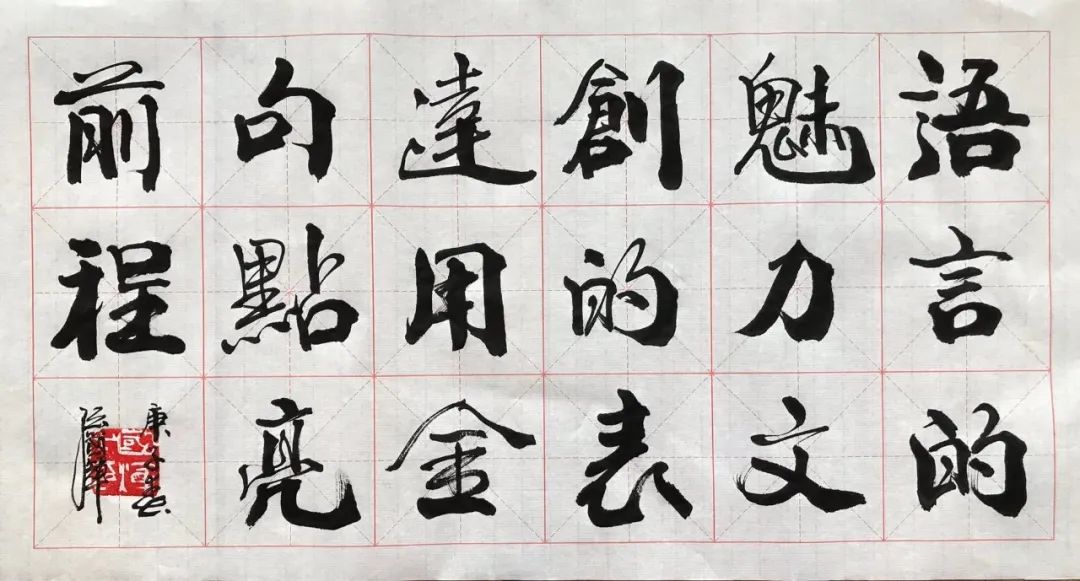 語言的
魅力文
創的表
達用金
句點亮
前程
庚子春